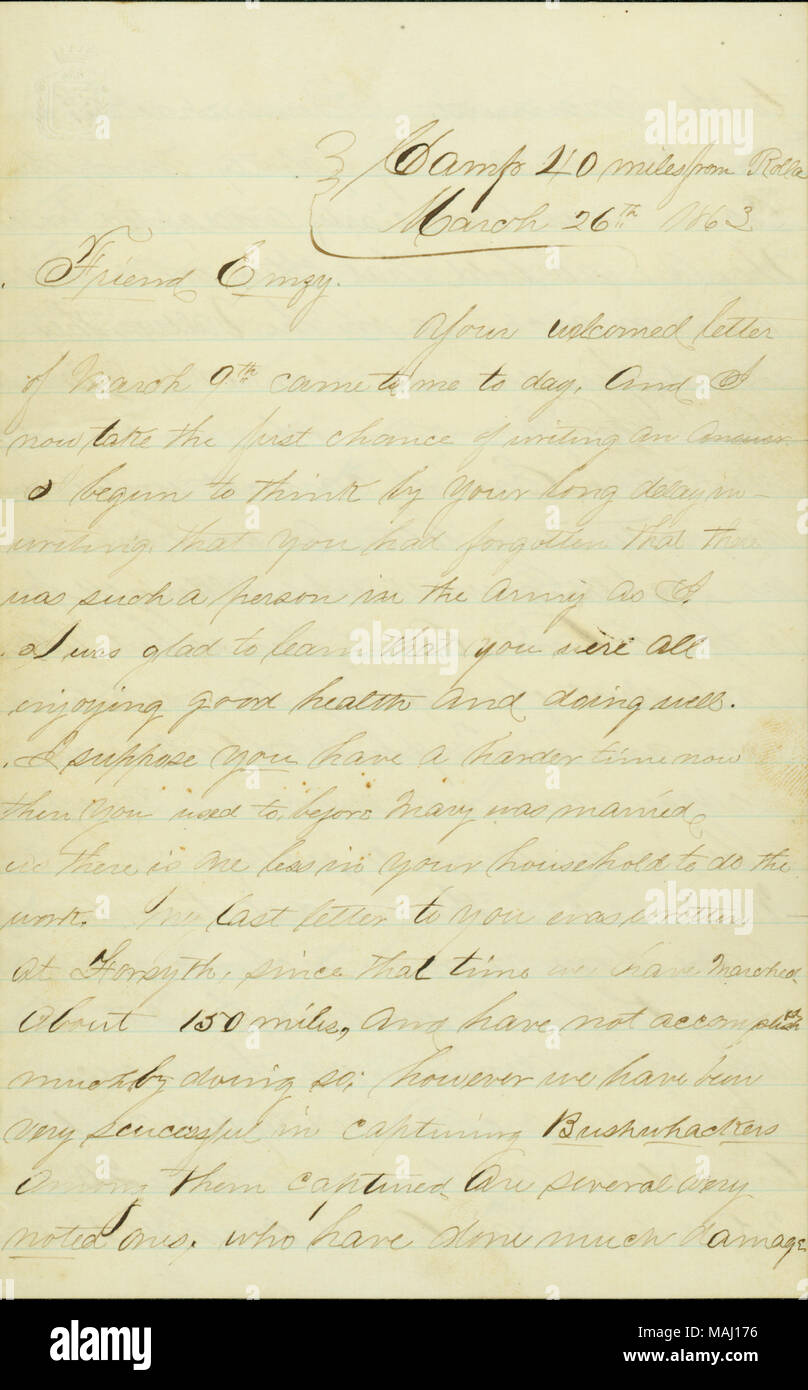 Camp 40 miles from Rolla
March 26th 1863
Friend Emzy.
Your welcomed letter
of March 9th came to me to day. And I
now take the first chance of writing an answer.
I begun to think by your long delay in
writing, that you had forgotten that there
was such a person in the army as I.
I was glad to learn that you were all
enjoying good health and doing well.
I suppose you have a harder time now
then you used to, before Mary was married,
as there is one less in your household to do the
work. My last letter to you was written
at Forsyth, since that time we have marched
about 150 miles, and have not accomplished
much by doing so; however we have been
very scucessful in capturing Bushwhackers
Among them captured are several very
noted ones, who have done much damage
alamy
Image ID: MAJ176
www.alamy.com